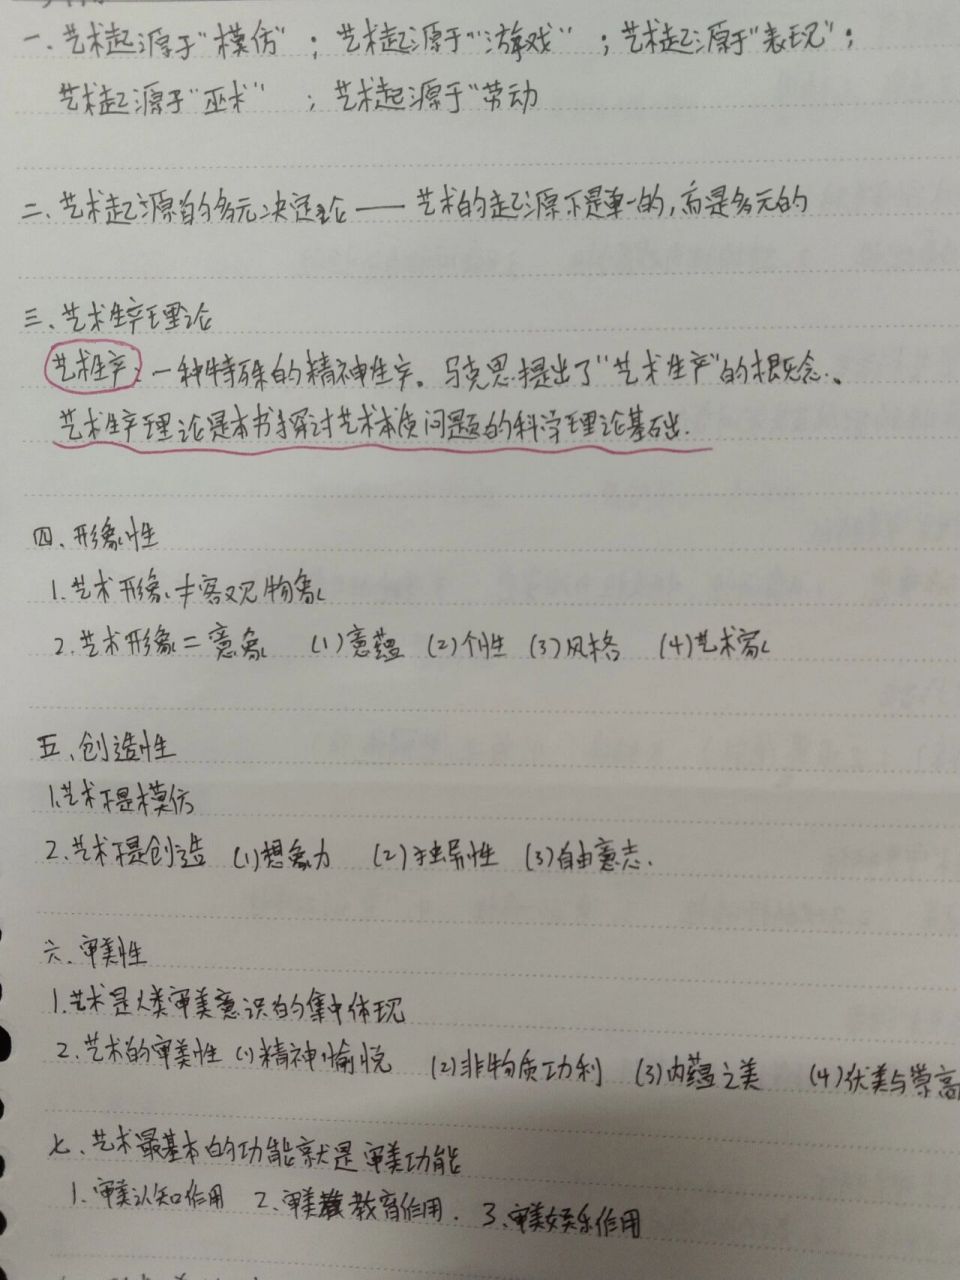 一、艺术起源于“模仿”；艺术起源于“游戏”；艺术起源于“表现”；
艺术起源于“巫术”；艺术起源于“劳动
二、艺术起源的多元决定论——艺术的起源不是单一的，而是多元的
三、艺术生产理论
艺术生产：一种特殊的精神生产。马克思提出了“艺术生产”的概念.。
艺术生产理论是本书探讨艺术本质问题的科学理论基础.
四、形象性
1.艺术形象≠客观物象
2.艺术形象=意象 (1)意蕴 (2)个性 (3)风格 (4)艺术家
五、创造性
1.艺术不是模仿
2.艺术是创造 (1)想象力 (2)独异性 (3)自由意志.
六、审美性
1.艺术是人类审美意识的集中体现
2.艺术的审美性 (1)精神愉悦 (2)非物质功利 (3)内蕴之美 (4)优美与崇高
七、艺术最基本的功能就是审美功能
1.审美认知作用 2.审美教育作用. 3.审美娱乐作用